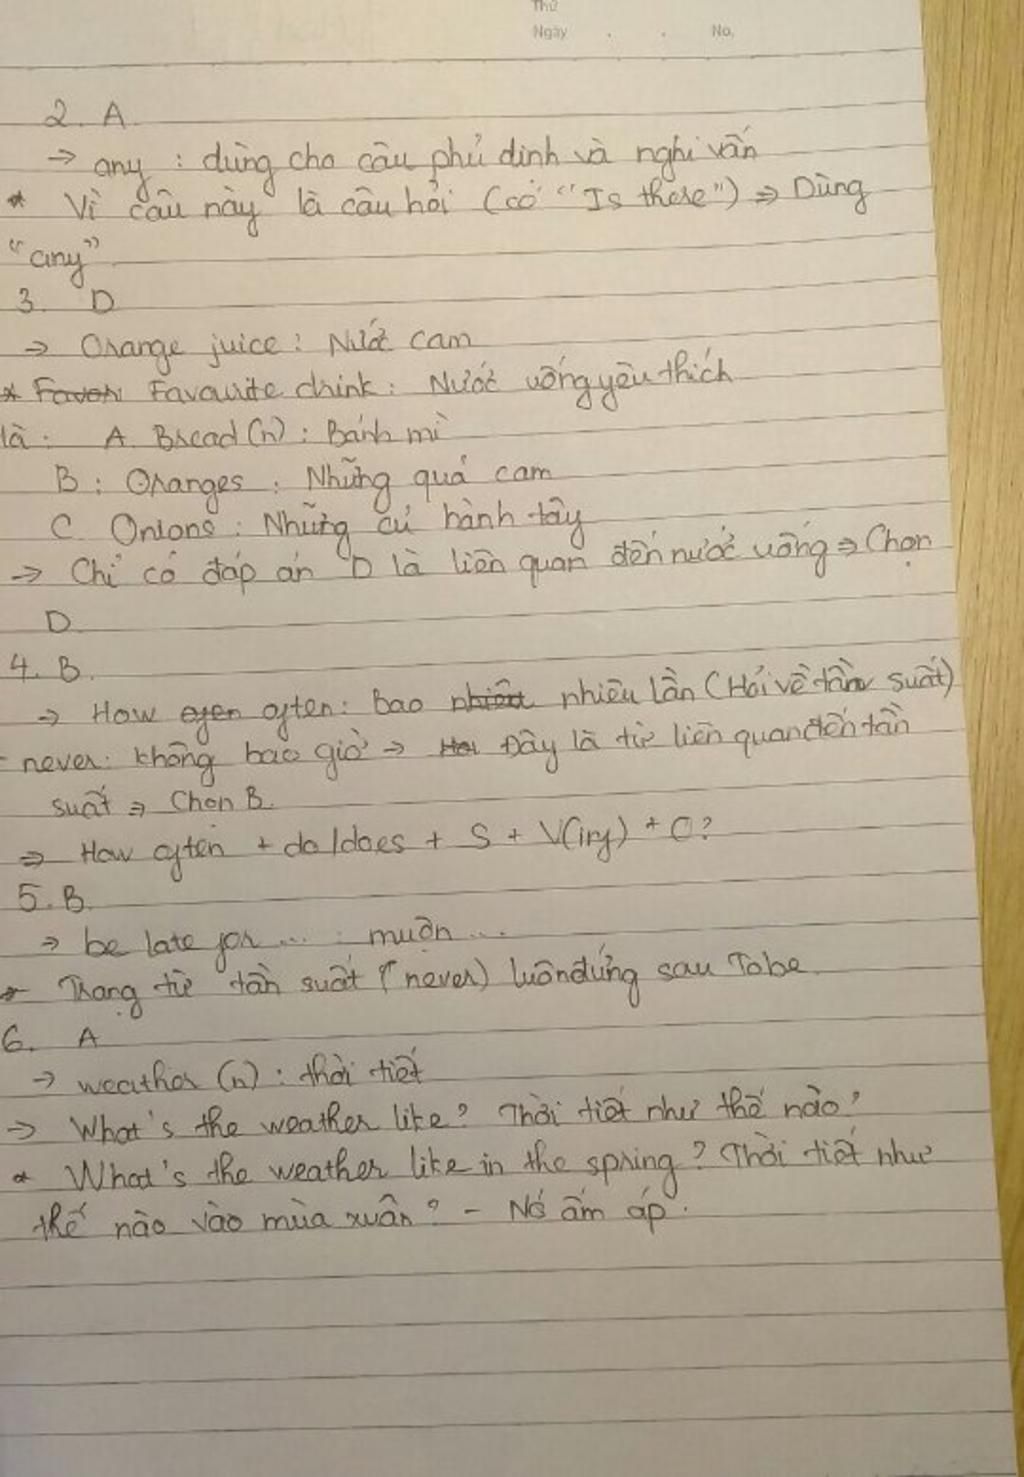 Thứ
Ngày . . No.
2. A
→ any : dùng cho câu phủ dinh và nghi vấn
* Vì câu này là câu hỏi (có "Is there") ⇒ Dùng
"any"
3. D
→ Orange juice : Nước cam
* Favourite drink : Nước uống yêu thích
là : A. Bread (n) : Bánh mì
B : Oranges : Những quả cam
C. Onions : Những củ hành tây
→ Chỉ có đáp án D là liên quan đến nước uống ⇒ Chọn
D
4. B.
→ How often : bao nhiêu lần (Hỏi về tần suất)
- never : không bao giờ → Đây là từ liên quan đến tần
suất ⇒ Chọn B.
⇒ How often + do/does + S + V(inf) + O?
5. B.
→ be late for ... : muộn ...
* Trạng từ tần suất (never) luôn đứng sau Tobe
6. A
→ weather (n) : thời tiết
→ What's the weather like? Thời tiết như thế nào?
* What's the weather like in the spring? Thời tiết như
thế nào vào mùa xuân? - Nó ấm áp.